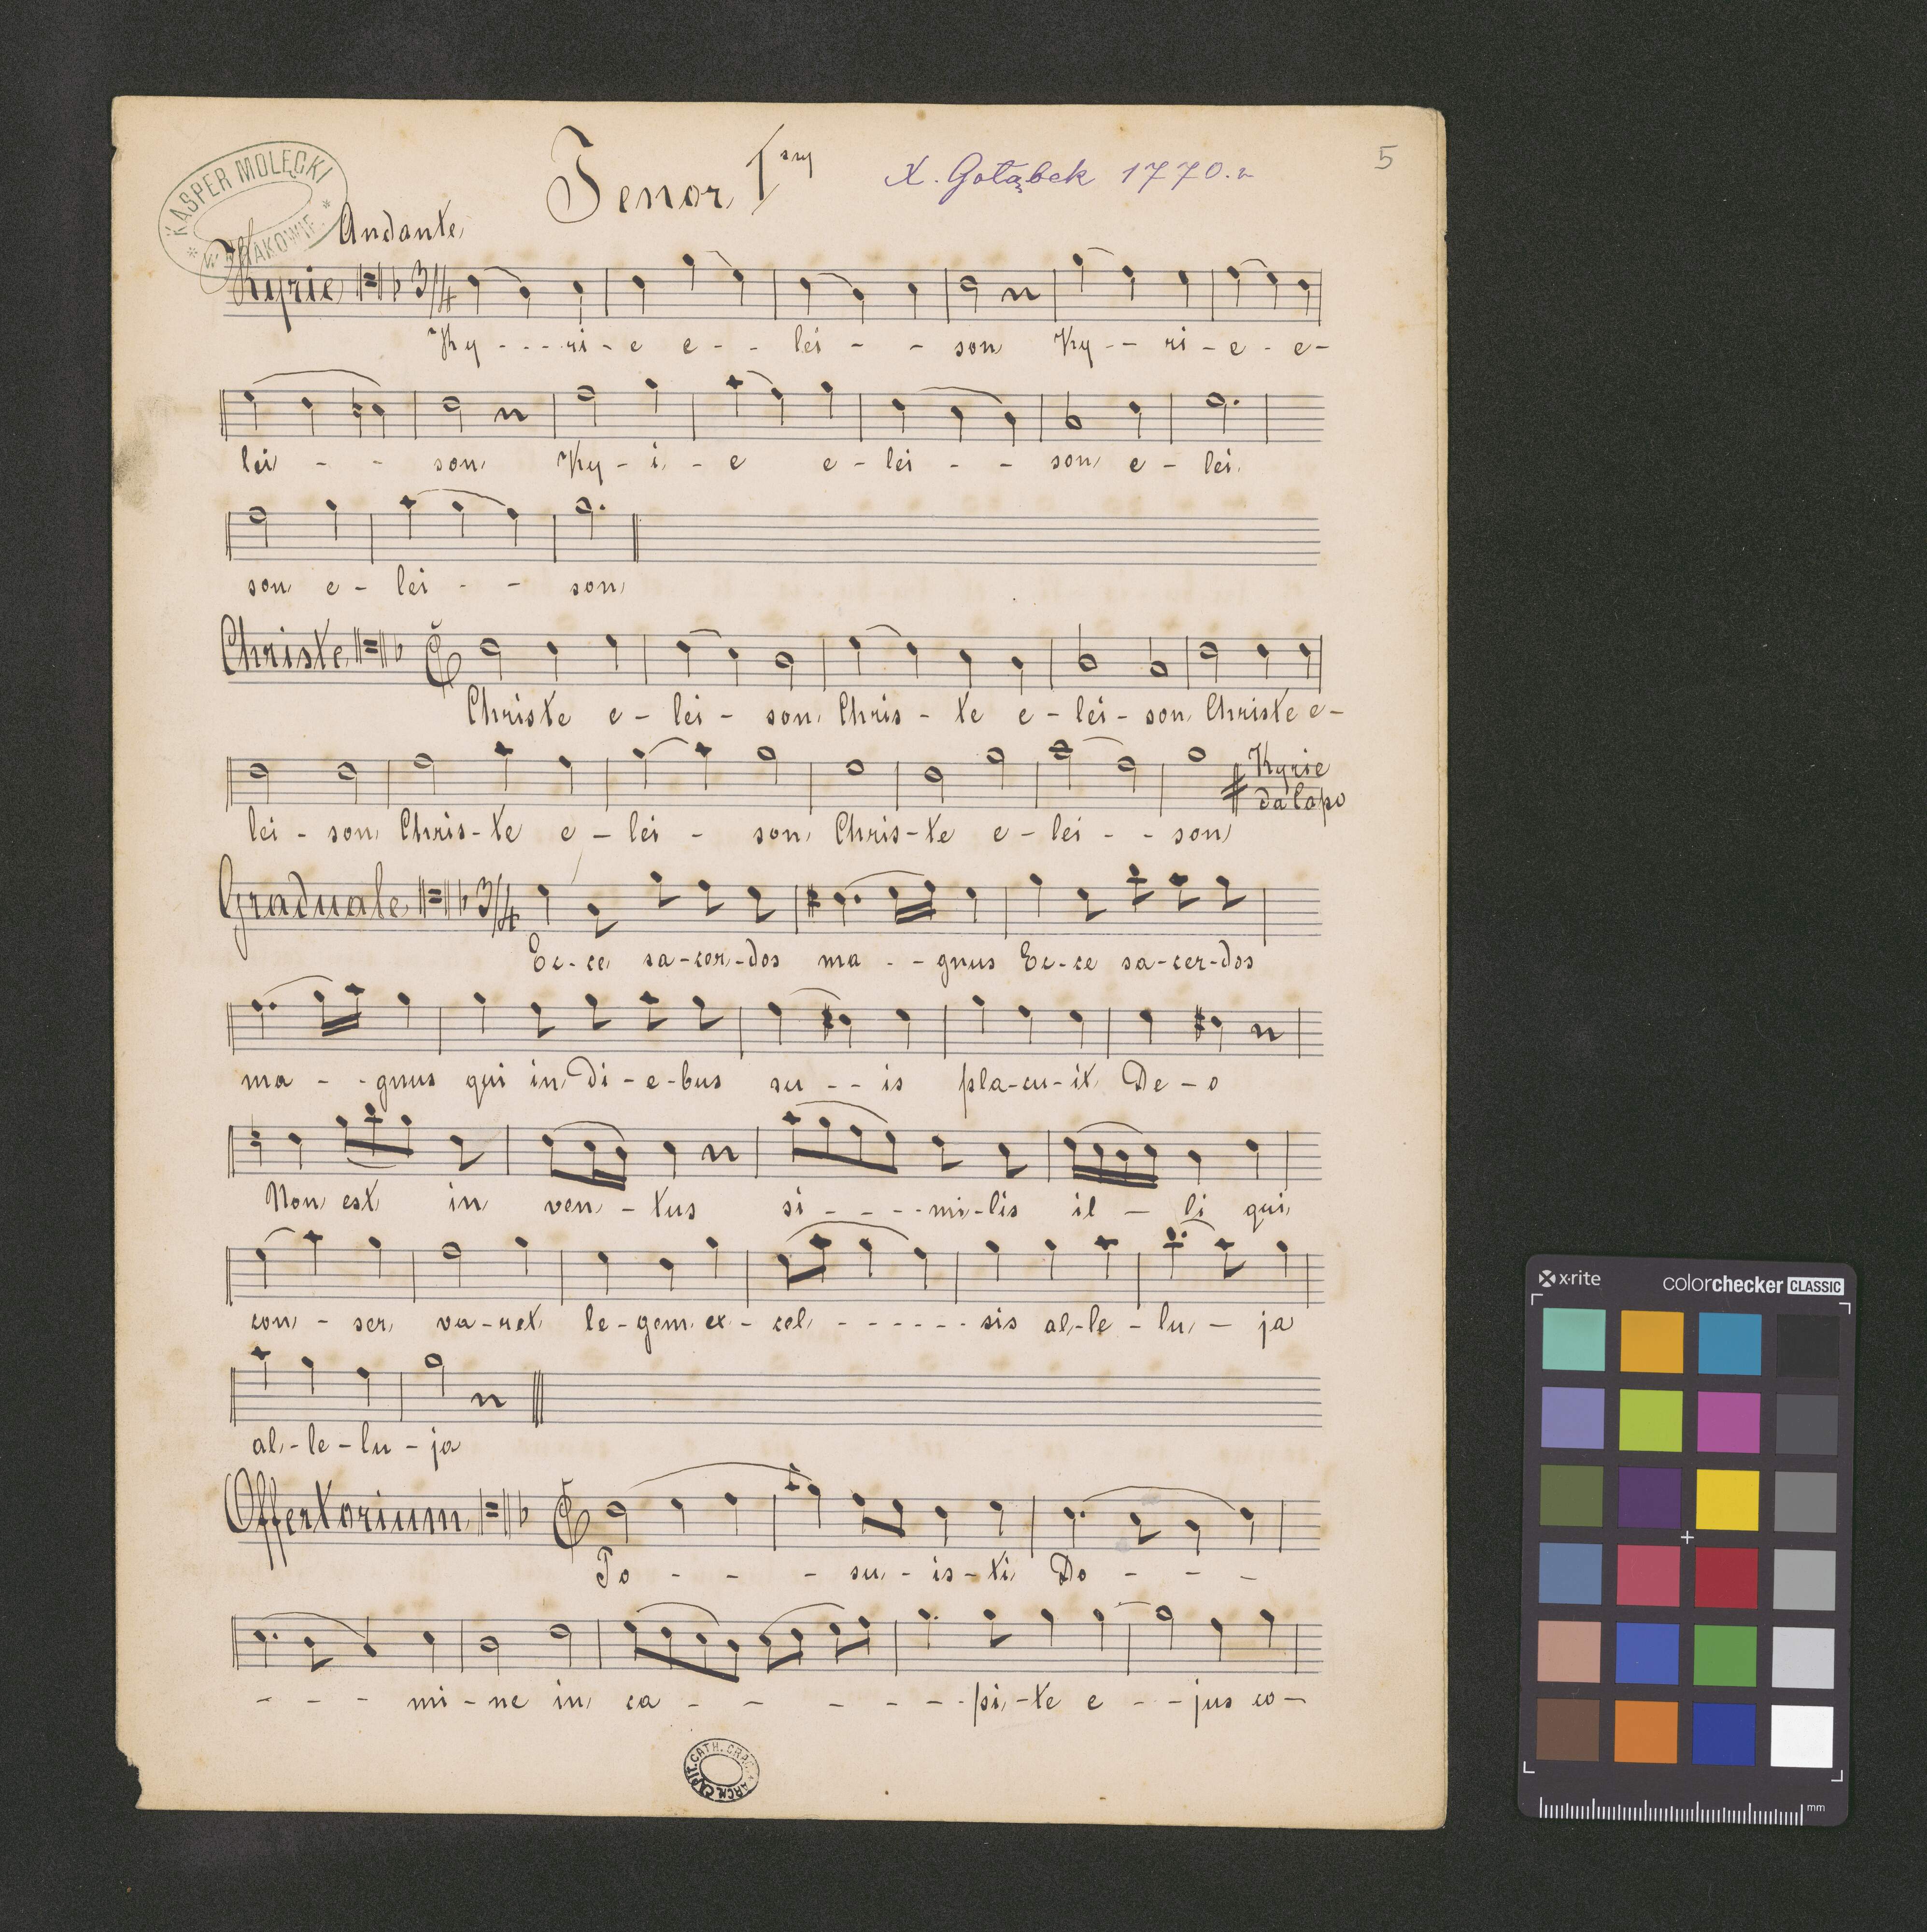 Tenor 1szy
X. Gołąbek 1770.r
5
KASPER MOLĘCKI
* W KRAKOWIE *
Andante
Kyrie 3/4
Ky - - - ri - e e - - lei - - son Ky - - ri - e - e -
lei - - son Ky - i - e e - lei - - son e - lei
son e - lei - - son
Christe
Christe e - lei - son Chris - te e - lei - son Christe e -
lei - son Chris - te e - lei - son Chris - te e - lei - - son
Kyrie
da Capo
Graduale 3/4
Ec - ce sa - cer - dos ma - - gnus Ec - ce sa - cer - dos
ma - - gnus qui in di - e - bus su - - is pla - cu - it De - o
Non est in ven - tus si - - - - mi - lis il - li qui
con - ser va - ret le - gem ex - cel - - - - - - sis al - le - lu - ja
al - le - lu - ja
Offertorium
Po - - - su - is - ti Do - - -
- - - mi - ne in ca - - - - - pi - te e - - jus co -
CAPIT. CATH. CRAC. ARCH.
x·rite
colorchecker CLASSIC
mm